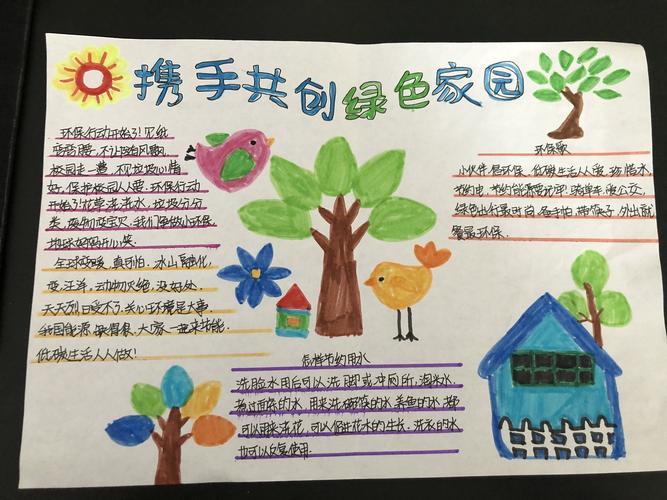 携手共创绿色家园
环保行动开始了!见纸
弯弯腰,不让随风飘,
校园走一遭,不见垃圾心情
好。保护校园人人要,环保行动
开始了!花草要浇水,垃圾分分
类,废物变宝贝,我们争做小环保,
地球妈妈开心笑
全球变暖,真可怕,冰山融化,
变汪洋,动物灭绝,没好处,
天天烈日受不了,关心环境是大事,
我国能源 缺得很,大家一起来节能,
低碳生活人人做!
环保歌
小伙伴 倡环保,低碳生活人人爱,珍惜水
节约电,节约能源要记牢,骑单车,坐公交,
绿色出行最时尚,备手帕,带筷子,外出就
餐最环保.
怎样节约用水
洗脸水用后可以洗脚或冲厕所,淘米水,
煮过面条的水,用来洗碗筷的水,养鱼的水,都
可以用来浇花,可以促进花木的生长,洗衣的水
也可以反复使用.